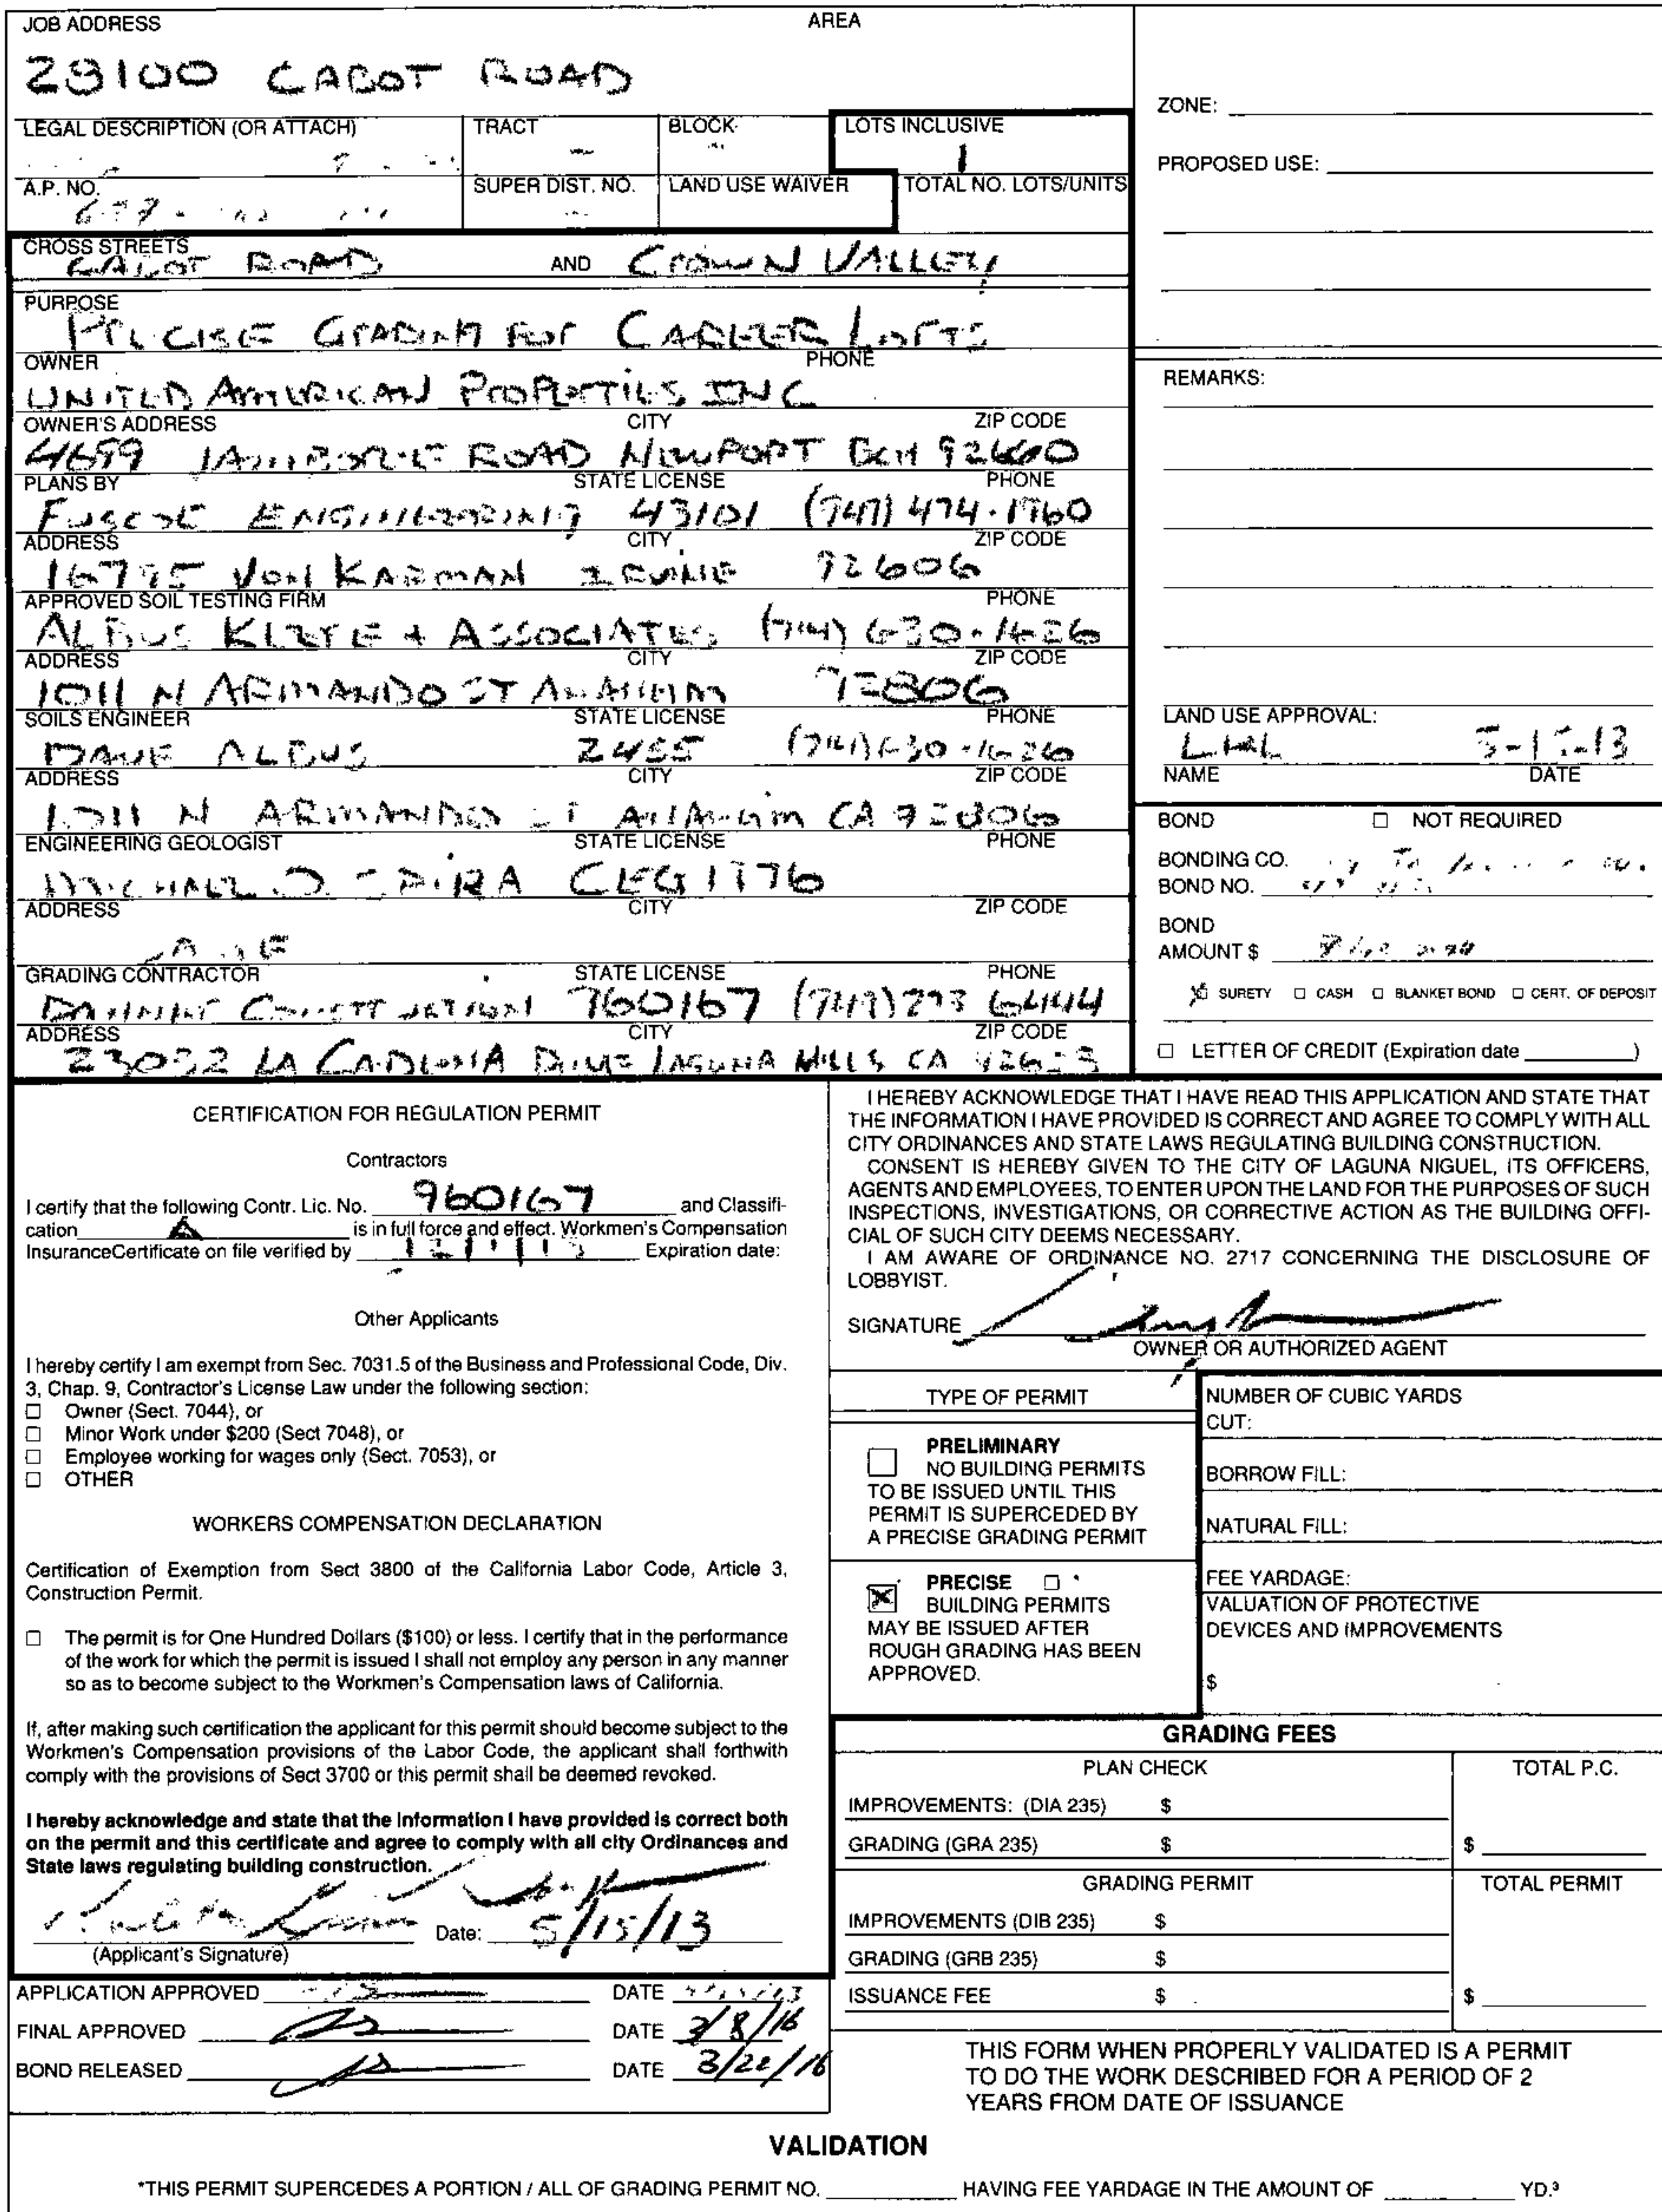 JOB ADDRESS AREA
28100 CABOT ROAD
LEGAL DESCRIPTION (OR ATTACH) TRACT BLOCK LOTS INCLUSIVE
– – 1
A.P. NO. SUPER DIST. NO. LAND USE WAIVER TOTAL NO. LOTS/UNITS
CROSS STREETS
CABOT ROAD AND CROWN VALLEY
PURPOSE
PRECISE GRADING FOR CAREER LOFTS
OWNER PHONE
UNITED AMERICAN PROPERTIES INC
OWNER'S ADDRESS CITY ZIP CODE
4699 JAMBOREE ROAD NEWPORT BCH 92660
PLANS BY STATE LICENSE PHONE
FUSCOE ENGINEERING 43101 (949) 474-1960
ADDRESS CITY ZIP CODE
16795 VON KARMAN IRVINE 92606
APPROVED SOIL TESTING FIRM PHONE
ALBUS KEEFE + ASSOCIATES (714) 630-1626
ADDRESS CITY ZIP CODE
1011 N ARMANDO ST ANAHEIM 92806
SOILS ENGINEER STATE LICENSE PHONE
DAVE ALBUS 2455 (714) 630-1626
ADDRESS CITY ZIP CODE
1011 N ARMANDO ST ANAHEIM CA 92806
ENGINEERING GEOLOGIST STATE LICENSE PHONE
MICHAEL O SPIRA CEG 1976
ADDRESS CITY ZIP CODE
SAME
GRADING CONTRACTOR STATE LICENSE PHONE
960167 (949) 293 6444
ADDRESS CITY ZIP CODE
23032 LA CADENA DRIVE LAGUNA HILLS CA
ZONE:
PROPOSED USE:
REMARKS:
LAND USE APPROVAL:
5-15-13
NAME DATE
BOND ☐ NOT REQUIRED
BONDING CO.
BOND NO.
BOND
AMOUNT $
☒ SURETY ☐ CASH ☐ BLANKET BOND ☐ CERT. OF DEPOSIT
☐ LETTER OF CREDIT (Expiration date )
CERTIFICATION FOR REGULATION PERMIT
Contractors
I certify that the following Contr. Lic. No. 960167 and Classifi-
cation A is in full force and effect. Workmen's Compensation
InsuranceCertificate on file verified by Expiration date:
Other Applicants
I hereby certify I am exempt from Sec. 7031.5 of the Business and Professional Code, Div.
3, Chap. 9, Contractor's License Law under the following section:
☐ Owner (Sect. 7044), or
☐ Minor Work under $200 (Sect 7048), or
☐ Employee working for wages only (Sect. 7053), or
☐ OTHER
WORKERS COMPENSATION DECLARATION
Certification of Exemption from Sect 3800 of the California Labor Code, Article 3,
Construction Permit.
☐ The permit is for One Hundred Dollars ($100) or less. I certify that in the performance
of the work for which the permit is issued I shall not employ any person in any manner
so as to become subject to the Workmen's Compensation laws of California.
If, after making such certification the applicant for this permit should become subject to the
Workmen's Compensation provisions of the Labor Code, the applicant shall forthwith
comply with the provisions of Sect 3700 or this permit shall be deemed revoked.
I hereby acknowledge and state that the information I have provided is correct both
on the permit and this certificate and agree to comply with all city Ordinances and
State laws regulating building construction.
Date: 5/15/13
(Applicant's Signature)
APPLICATION APPROVED DATE
FINAL APPROVED DATE 3/8/16
BOND RELEASED DATE 3/22/16
I HEREBY ACKNOWLEDGE THAT I HAVE READ THIS APPLICATION AND STATE THAT
THE INFORMATION I HAVE PROVIDED IS CORRECT AND AGREE TO COMPLY WITH ALL
CITY ORDINANCES AND STATE LAWS REGULATING BUILDING CONSTRUCTION.
CONSENT IS HEREBY GIVEN TO THE CITY OF LAGUNA NIGUEL, ITS OFFICERS,
AGENTS AND EMPLOYEES, TO ENTER UPON THE LAND FOR THE PURPOSES OF SUCH
INSPECTIONS, INVESTIGATIONS, OR CORRECTIVE ACTION AS THE BUILDING OFFI-
CIAL OF SUCH CITY DEEMS NECESSARY.
I AM AWARE OF ORDINANCE NO. 2717 CONCERNING THE DISCLOSURE OF
LOBBYIST.
SIGNATURE
OWNER OR AUTHORIZED AGENT
TYPE OF PERMIT
☐ PRELIMINARY
NO BUILDING PERMITS
TO BE ISSUED UNTIL THIS
PERMIT IS SUPERCEDED BY
A PRECISE GRADING PERMIT
☒ PRECISE ☐ *
BUILDING PERMITS
MAY BE ISSUED AFTER
ROUGH GRADING HAS BEEN
APPROVED.
NUMBER OF CUBIC YARDS
CUT:
BORROW FILL:
NATURAL FILL:
FEE YARDAGE:
VALUATION OF PROTECTIVE
DEVICES AND IMPROVEMENTS
$
GRADING FEES
PLAN CHECK TOTAL P.C.
IMPROVEMENTS: (DIA 235) $
GRADING (GRA 235) $ $
GRADING PERMIT TOTAL PERMIT
IMPROVEMENTS (DIB 235) $
GRADING (GRB 235) $
ISSUANCE FEE $ $
THIS FORM WHEN PROPERLY VALIDATED IS A PERMIT
TO DO THE WORK DESCRIBED FOR A PERIOD OF 2
YEARS FROM DATE OF ISSUANCE
VALIDATION
*THIS PERMIT SUPERCEDES A PORTION / ALL OF GRADING PERMIT NO. HAVING FEE YARDAGE IN THE AMOUNT OF YD.³